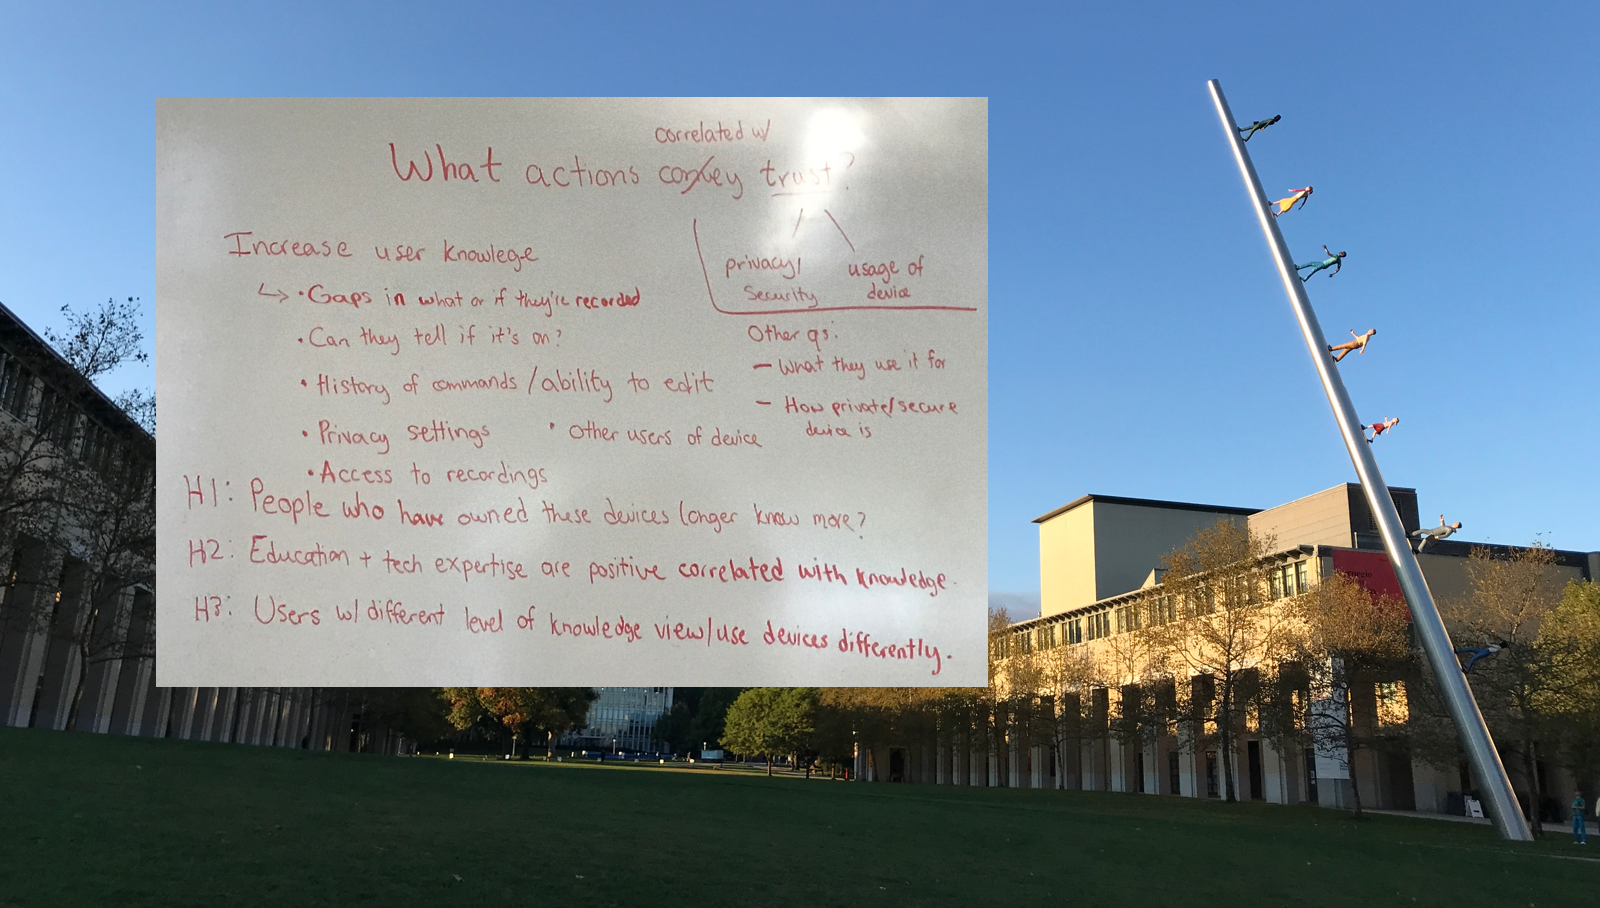 correlated w/
What actions convey trust?
privacy/ usage of
Security device
Increase user knowlege
↳ • Gaps in what or if they're recorded
• Can they tell if it's on?
• History of commands / ability to edit
• Privacy settings • Other users of device
• Access to recordings
Other qs:
– What they use it for
– How private/secure
device is
H1: People who have owned these devices longer know more?
H2: Education + tech expertise are positive correlated with knowledge.
H3: Users w/ different level of knowledge view/use devices differently.